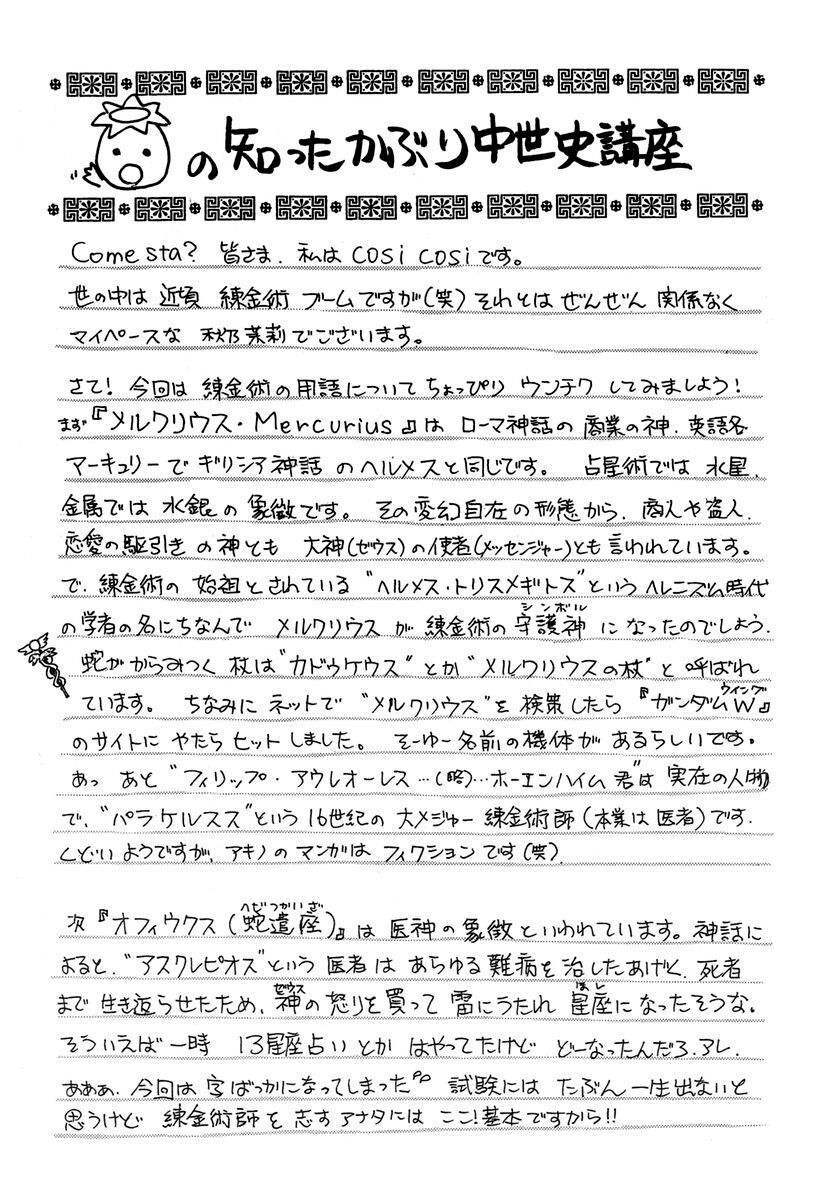 の知ったかぶり中世史講座
Come sta? 皆さま、私は cosi cosi です。
世の中は 近頃 練金術 ブームですが(笑) それとは ぜんぜん 関係なく
マイペースな 秋乃茉莉でございます。
さて! 今回は 練金術の用語について ちょっぴり ウンチク してみましょう!
まず『メルクリウス・Mercurius』は ローマ神話の 商業の神、英語名
マーキュリーで ギリシア神話 のヘルメスと同じです。 占星術では 水星、
金属では 水銀の 象徴です。 その変幻自在の形態から、商人や盗人、
恋愛の駆引き の神とも 大神(ゼウス)の使者(メッセンジャー)とも言われています。
で、練金術の 始祖とされている “ヘルメス・トリスメギトス”という ヘレニズム時代
の学者の名にちなんで メルクリウス が 練金術の守護神シンボル になったのでしょう。
蛇が からみつく 杖は “カドゥケウス” とか “メルクリウスの杖” と 呼ばれ
ています。 ちなみに ネットで “メルクリウス”を 検索したら 『ガンダムWウイング』
のサイトに やたら ヒットしました。 そーゆー名前の機体が あるらしいです。
あっ あと “フィリップ・アウレオーレス…(略)…ホーエンハイム君”は 実在の人物
で、“パラケルスス”という 16世紀の 大メジャー 練金術師(本業は医者)です。
くどいようですが、アキノのマンガは フィクションです(笑)
次『オフィウクス(蛇遣座へびつかいざ)』は 医神の象徴といわれています。神話に
よると、“アスクレピオス”という 医者は あらゆる難病を治したあげく、死者
まで 生き返らせたため、神ゼウスの 怒りを買って 雷にうたれ 星座ほしになったそうな。
そういえば 一時 13星座占い とか はやってたけど どーなったんだろ、アレ。
あああ、今回は 字ばっかになってしまった 試験には たぶん 一生出ないと
思うけど 練金術師を 志すアナタには ここ!基本ですから!!